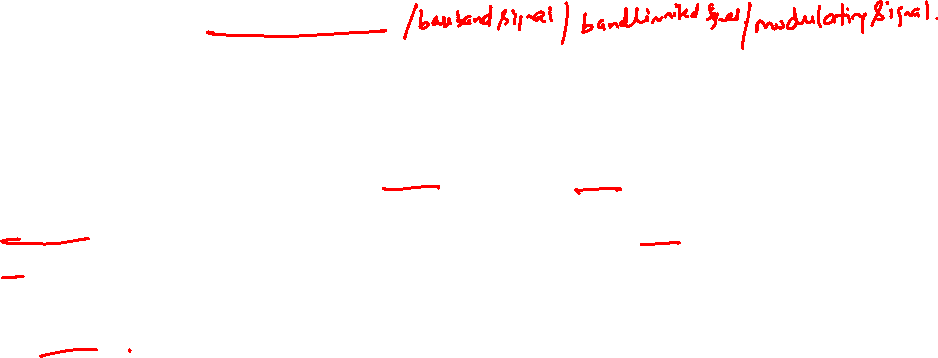 /baseband signal/ bandlimited signal/modulating signal.